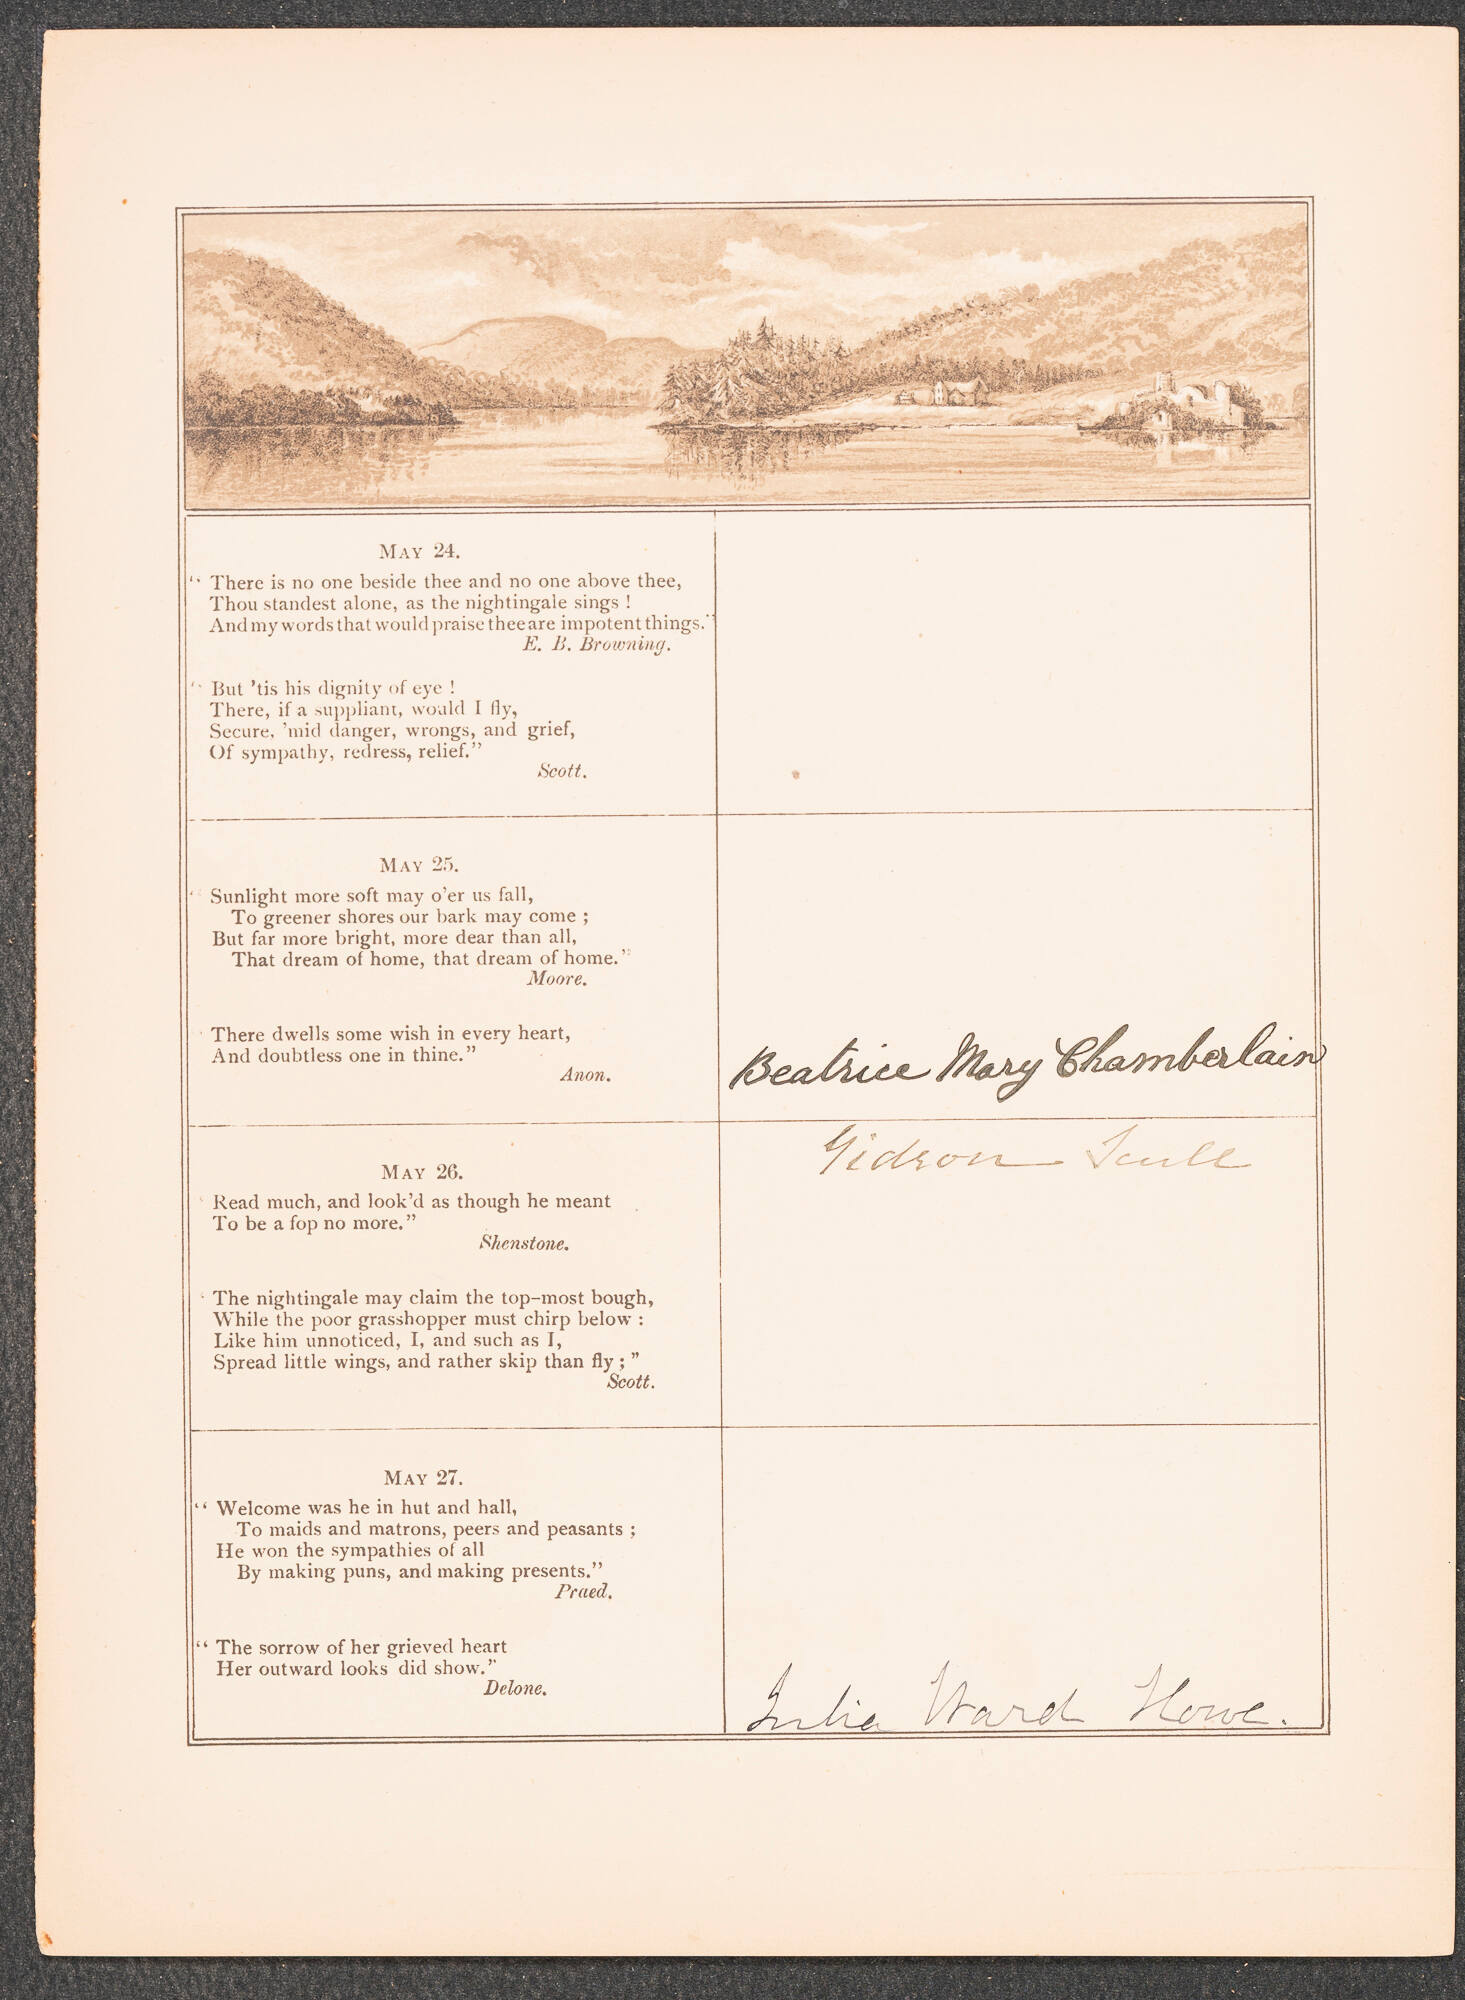 May 24.
“ There is no one beside thee and no one above thee,
Thou standest alone, as the nightingale sings !
And my words that would praise thee are impotent things.”
E. B. Browning.
“ But ’tis his dignity of eye !
There, if a suppliant, would I fly,
Secure, ’mid danger, wrongs, and grief,
Of sympathy, redress, relief.”
Scott.
May 25.
“ Sunlight more soft may o’er us fall,
To greener shores our bark may come ;
But far more bright, more dear than all,
That dream of home, that dream of home.”
Moore.
‘ There dwells some wish in every heart,
And doubtless one in thine.”
Anon.
Beatrice Mary Chamberlain
May 26.
‘ Read much, and look’d as though he meant
To be a fop no more.”
Shenstone.
‘ The nightingale may claim the top-most bough,
While the poor grasshopper must chirp below :
Like him unnoticed, I, and such as I,
Spread little wings, and rather skip than fly ; ”
Scott.
Gideon Scull
May 27.
“ Welcome was he in hut and hall,
To maids and matrons, peers and peasants ;
He won the sympathies of all
By making puns, and making presents.”
Praed.
“ The sorrow of her grieved heart
Her outward looks did show.”
Delone.
Julia Ward Howe.